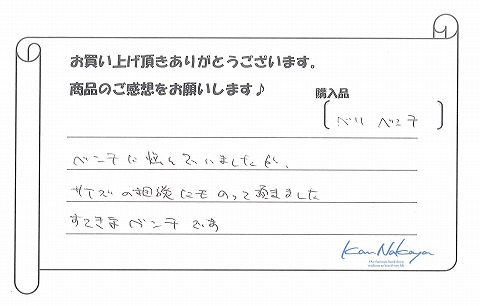 お買い上げ頂きありがとうございます。
商品のご感想をお願いします♪
購入品
ベル ベンチ
ベンチに悩んでいましたが、
サイズの相談にものって頂きました
すてきなベンチです
KanNakaya